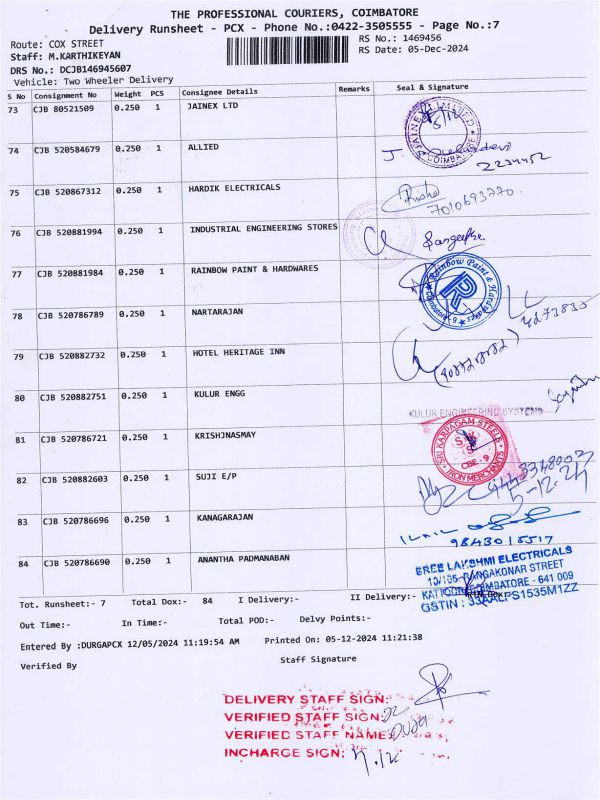 THE PROFESSIONAL COURIERS, COIMBATORE
Delivery Runsheet - PCX - Phone No.:0422-3505555 - Page No.:7
Route: COX STREET RS No.: 1469456
Staff: M.KARTHIKEYAN RS Date: 05-Dec-2024
DRS No.: DCJB146945607
Vehicle: Two Wheeler Delivery
S No Consignment No Weight PCS Consignee Details Remarks Seal & Signature
73 CJB 80521509 0.250 1 JAINEX LTD
JAINEX LIMITED
COIMBATORE
74 CJB 520584679 0.250 1 ALLIED
2234452
75 CJB 520867312 0.250 1 HARDIK ELECTRICALS
7010693770.
76 CJB 520881994 0.250 1 INDUSTRIAL ENGINEERING STORES
77 CJB 520881984 0.250 1 RAINBOW PAINT & HARDWARES
Rainbow Paint & Hardwares
78 CJB 520786789 0.250 1 NARTARAJAN
79 CJB 520882732 0.250 1 HOTEL HERITAGE INN
80 CJB 520882751 0.250 1 KULUR ENGG
KULUR ENGINEERING SYSTEMS
81 CJB 520786721 0.250 1 KRISHJNASMAY
SRI KARPAGAM STEELS
CBE - 9
IRON MERCHANTS
82 CJB 520882603 0.250 1 SUJI E/P
5-12-24
83 CJB 520786696 0.250 1 KANAGARAJAN
9843015517
84 CJB 520786690 0.250 1 ANANTHA PADMANABAN
SREE LAKSHMI ELECTRICALS
COIMBATORE - 641 009
GSTIN : 33AALFS1535M1ZZ
Tot. Runsheet:- 7 Total Dox:- 84 I Delivery:- II Delivery:-
Out Time:- In Time:- Total POD:- Delvy Points:-
Entered By :DURGAPCX 12/05/2024 11:19:54 AM Printed On: 05-12-2024 11:21:38
Verified By Staff Signature
DELIVERY STAFF SIGN:
VERIFIED STAFF SIGN:
VERIFIED STAFF NAME:
INCHARGE SIGN: